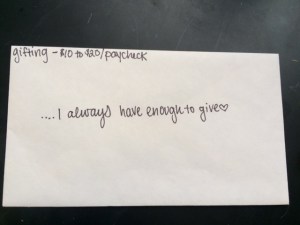 gifting - $10 to $20/paycheck
....I always have enough to give♡